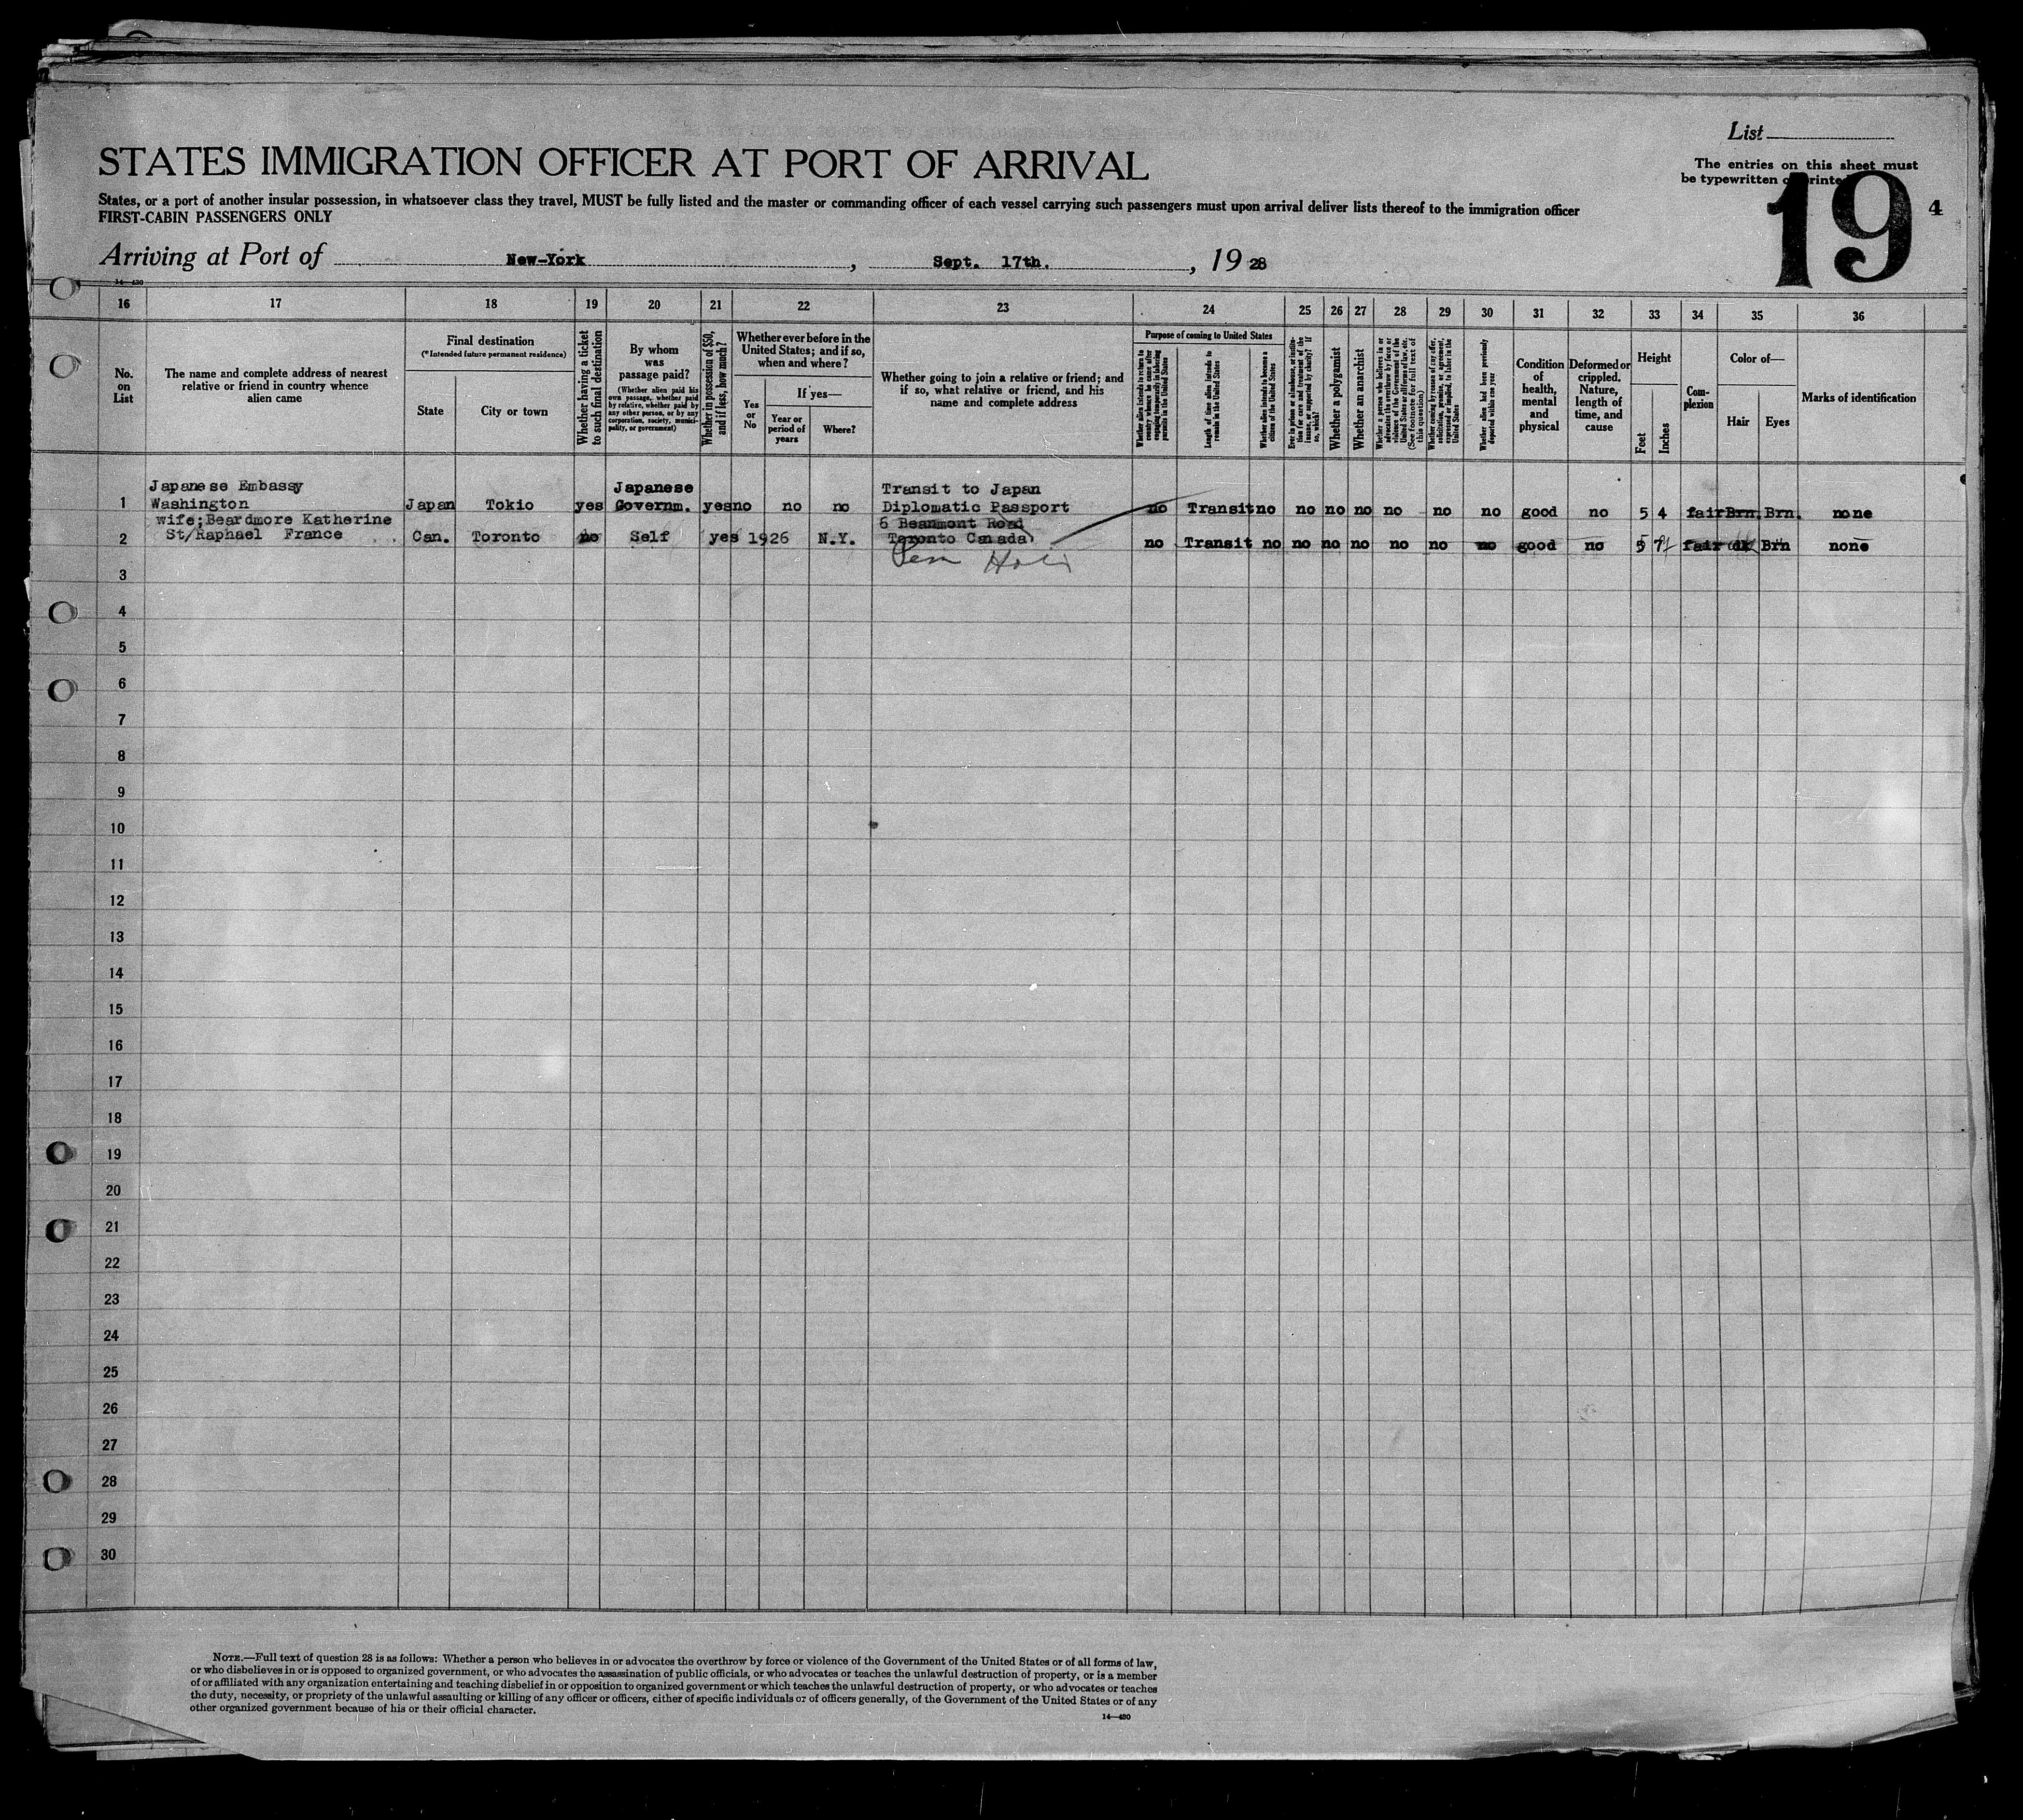 List
STATES IMMIGRATION OFFICER AT PORT OF ARRIVAL
The entries on this sheet must
be typewritten or printed
19
4
States, or a port of another insular possession, in whatsoever class they travel, MUST be fully listed and the master or commanding officer of each vessel carrying such passengers must upon arrival deliver lists thereof to the immigration officer
FIRST-CABIN PASSENGERS ONLY
Arriving at Port of New-York, Sept. 17th., 1928
14—430
16 17 18 19 20 21 22 23 24 25 26 27 28 29 30 31 32 33 34 35 36
No. on List
The name and complete address of nearest relative or friend in country whence alien came
Final destination
(*Intended future permanent residence)
State
City or town
Whether having a ticket to such final destination
By whom was passage paid?
(Whether alien paid his own passage, whether paid by relative, whether paid by any other person, or by any corporation, society, municipality, or government)
Whether in possession of $50, and if less, how much?
Whether ever before in the United States; and if so, when and where?
Yes or No
If yes—
Year or period of years
Where?
Whether going to join a relative or friend; and if so, what relative or friend, and his name and complete address
Purpose of coming to United States
Whether alien intends to return to country whence he came after engaging temporarily in laboring pursuits in the United States
Length of time alien intends to remain in the United States
Whether alien intends to become a citizen of the United States
Ever in prison or almshouse, or institution for care and treatment of the insane, or supported by charity? If so, which?
Whether a polygamist
Whether an anarchist
Whether a person who believes in or advocates the overthrow by force or violence of the Government of the United States or all forms of law, etc. (See footnote for full text of this question)
Whether coming by reason of any offer, solicitation, promise, or agreement, expressed or implied, to labor in the United States
Whether alien had been previously deported within one year
Condition of health, mental and physical
Deformed or crippled. Nature, length of time, and cause
Height
Feet
Inches
Complexion
Color of—
Hair
Eyes
Marks of identification
Japanese Embassy Japanese Transit to Japan
1 Washington Japan Tokio yes Governm. yes no no no Diplomatic Passport no Transit no no no no no no no good no 5 4 fair Brn. Brn. none
wife;Beardmore Katherine 6 Beanmont Road
2 St/Raphael France Can. Toronto no Self yes 1926 N.Y. Toronto Canada no Transit no no no no no no no good no 5 fair dk Brn none
3
4
5
6
7
8
9
10
11
12
13
14
15
16
17
18
19
20
21
22
23
24
25
26
27
28
29
30
NOTE.—Full text of question 28 is as follows: Whether a person who believes in or advocates the overthrow by force or violence of the Government of the United States or of all forms of law,
or who disbelieves in or is opposed to organized government, or who advocates the assassination of public officials, or who advocates or teaches the unlawful destruction of property, or is a member
of or affiliated with any organization entertaining and teaching disbelief in or opposition to organized government or which teaches the unlawful destruction of property, or who advocates or teaches
the duty, necessity, or propriety of the unlawful assaulting or killing of any officer or officers, either of specific individuals or of officers generally, of the Government of the United States or of any
other organized government because of his or their official character.
14—430